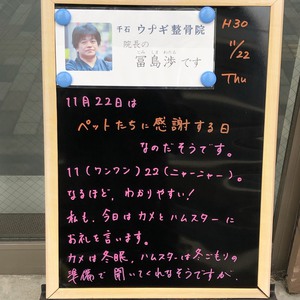 千石 ウナギ整骨院
院長の
冨島渉です
H30
11/22
Thu
11月22日は
ペットたちに感謝する日
なのだそうです。
11(ワンワン)22(ニャーニャー)。
なるほど、わかりやすい!
私も、今日はカメとハムスターに
お礼を言います。
カメは冬眠、ハムスターは冬ごもりの
準備で聞いてくれなそうですが。